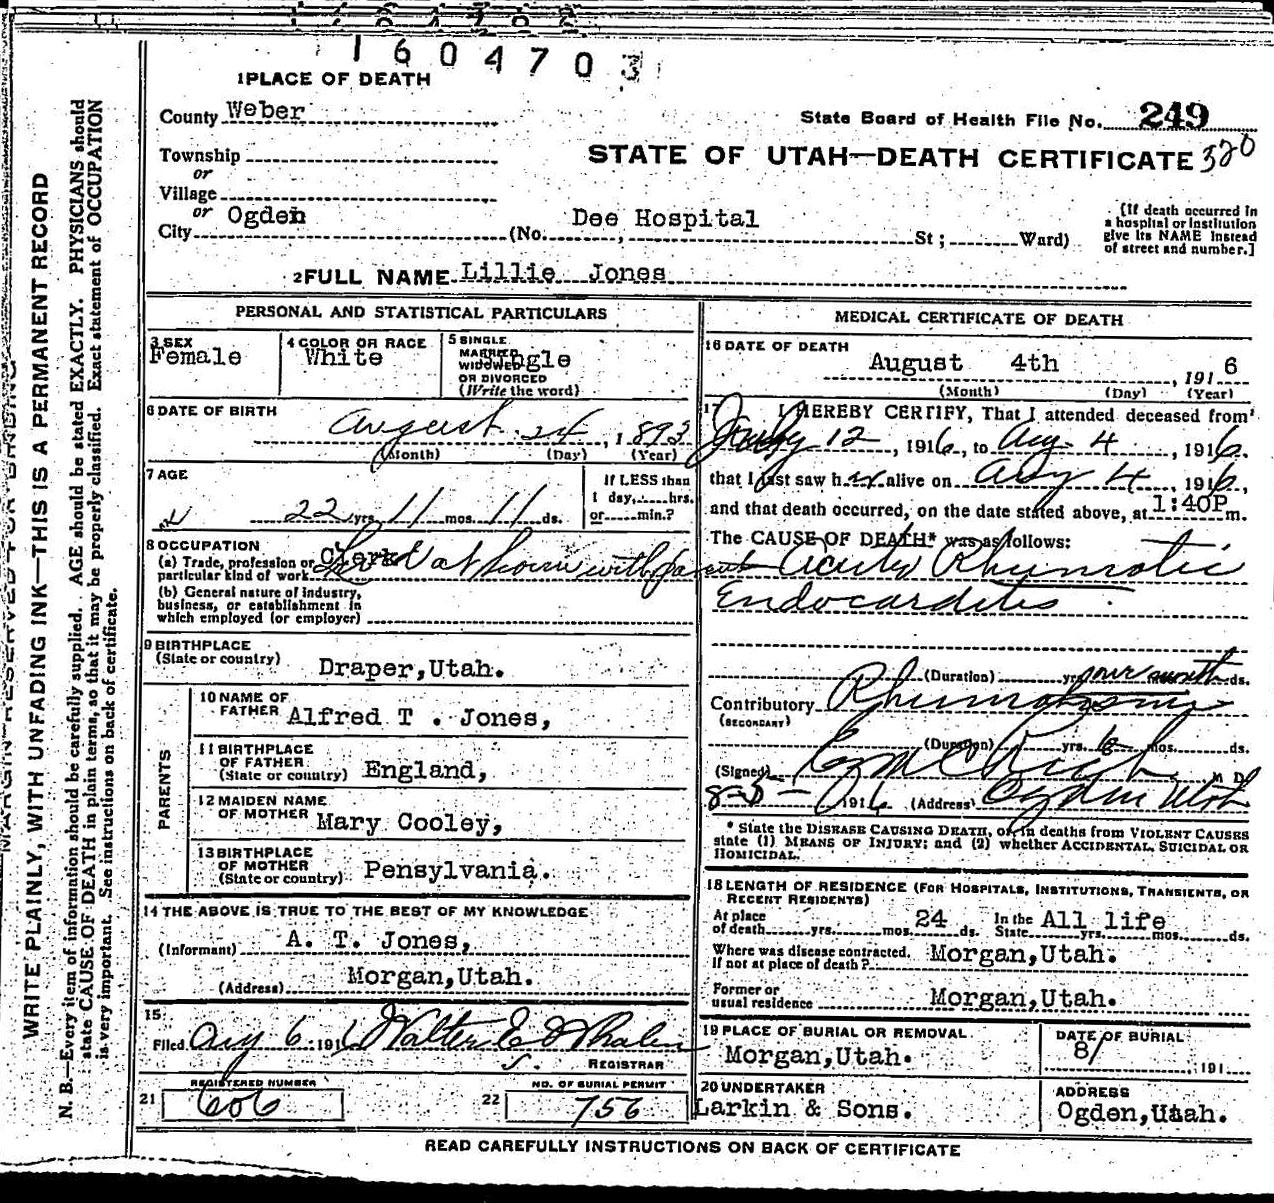 1604703
1 PLACE OF DEATH
County Weber
State Board of Health File No. 249
Township
or
STATE OF UTAH—DEATH CERTIFICATE 320
Village
or
City Ogden (No. , Dee Hospital St ; Ward)
[If death occurred in
a hospital or institution
give its NAME instead
of street and number.]
2 FULL NAME Lillie Jones
PERSONAL AND STATISTICAL PARTICULARS
3 SEX
Female
4 COLOR OR RACE
White
5 SINGLE
MARRIED
WIDOWED
OR DIVORCED
(Write the word)
ngle
6 DATE OF BIRTH
August 24, 1893
(Month) (Day) (Year)
7 AGE
22 yrs 11 mos. 11 ds.
If LESS than
1 day, hrs.
or min.?
8 OCCUPATION
(a) Trade, profession or
particular kind of work at home with parents
(b) General nature of industry,
business, or establishment in
which employed (or employer)
9 BIRTHPLACE
(State or country) Draper, Utah.
PARENTS
10 NAME OF
FATHER Alfred T. Jones,
11 BIRTHPLACE
OF FATHER
(State or country) England,
12 MAIDEN NAME
OF MOTHER Mary Cooley,
13 BIRTHPLACE
OF MOTHER
(State or country) Pensylvania.
14 THE ABOVE IS TRUE TO THE BEST OF MY KNOWLEDGE
(Informant) A. T. Jones,
(Address) Morgan, Utah.
15
Filed Aug 6 191 Walter E Whalen
REGISTRAR
21 REGISTERED NUMBER
606
22 NO. OF BURIAL PERMIT
756
MEDICAL CERTIFICATE OF DEATH
16 DATE OF DEATH
August 4th, 1916
(Month) (Day) (Year)
17 I HEREBY CERTIFY, That I attended deceased from
July 12, 1916, to Aug. 4, 1916.
that I last saw her alive on Aug 4, 1916,
and that death occurred, on the date stated above, at 1:40P m.
The CAUSE OF DEATH* was as follows:
Acute Rhumatic
Endocarditis
(Duration) yrs. one month ds.
Contributory Rhumatism
(SECONDARY)
(Duration) yrs. 6 mos. ds.
(Signed) M D
8-5- 1916 (Address) Ogden Utah
* State the DISEASE CAUSING DEATH, or in deaths from VIOLENT CAUSES
state (1) MEANS OF INJURY; and (2) whether ACCIDENTAL, SUICIDAL OR
HOMICIDAL.
18 LENGTH OF RESIDENCE (FOR HOSPITALS, INSTITUTIONS, TRANSIENTS, OR
RECENT RESIDENTS)
At place
of death yrs. mos. 24 ds. In the
State All life yrs. mos. ds.
Where was disease contracted,
If not at place of death? Morgan, Utah.
Former or
usual residence Morgan, Utah.
19 PLACE OF BURIAL OR REMOVAL
Morgan, Utah.
DATE OF BURIAL
8/ , 191
20 UNDERTAKER
Larkin & Sons.
ADDRESS
Ogden, Utah.
READ CAREFULLY INSTRUCTIONS ON BACK OF CERTIFICATE
MARGIN RESERVED FOR BINDING
WRITE PLAINLY, WITH UNFADING INK—THIS IS A PERMANENT RECORD
N. B.—Every item of information should be carefully supplied. AGE should be stated EXACTLY. PHYSICIANS should
state CAUSE OF DEATH in plain terms, so that it may be properly classified. Exact statement of OCCUPATION
is very important. See instructions on back of certificate.